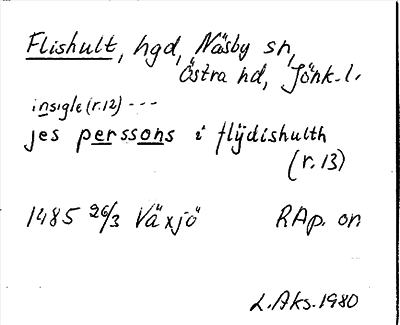 Flishult, hgd, Näsby sn,
Östra hd, Jönk. l.
insigle (r.12) ---
jes perssons i flÿdishulth
(r. 13)
1485 26/3 Växjö RAp. on
L. Aks. 1980